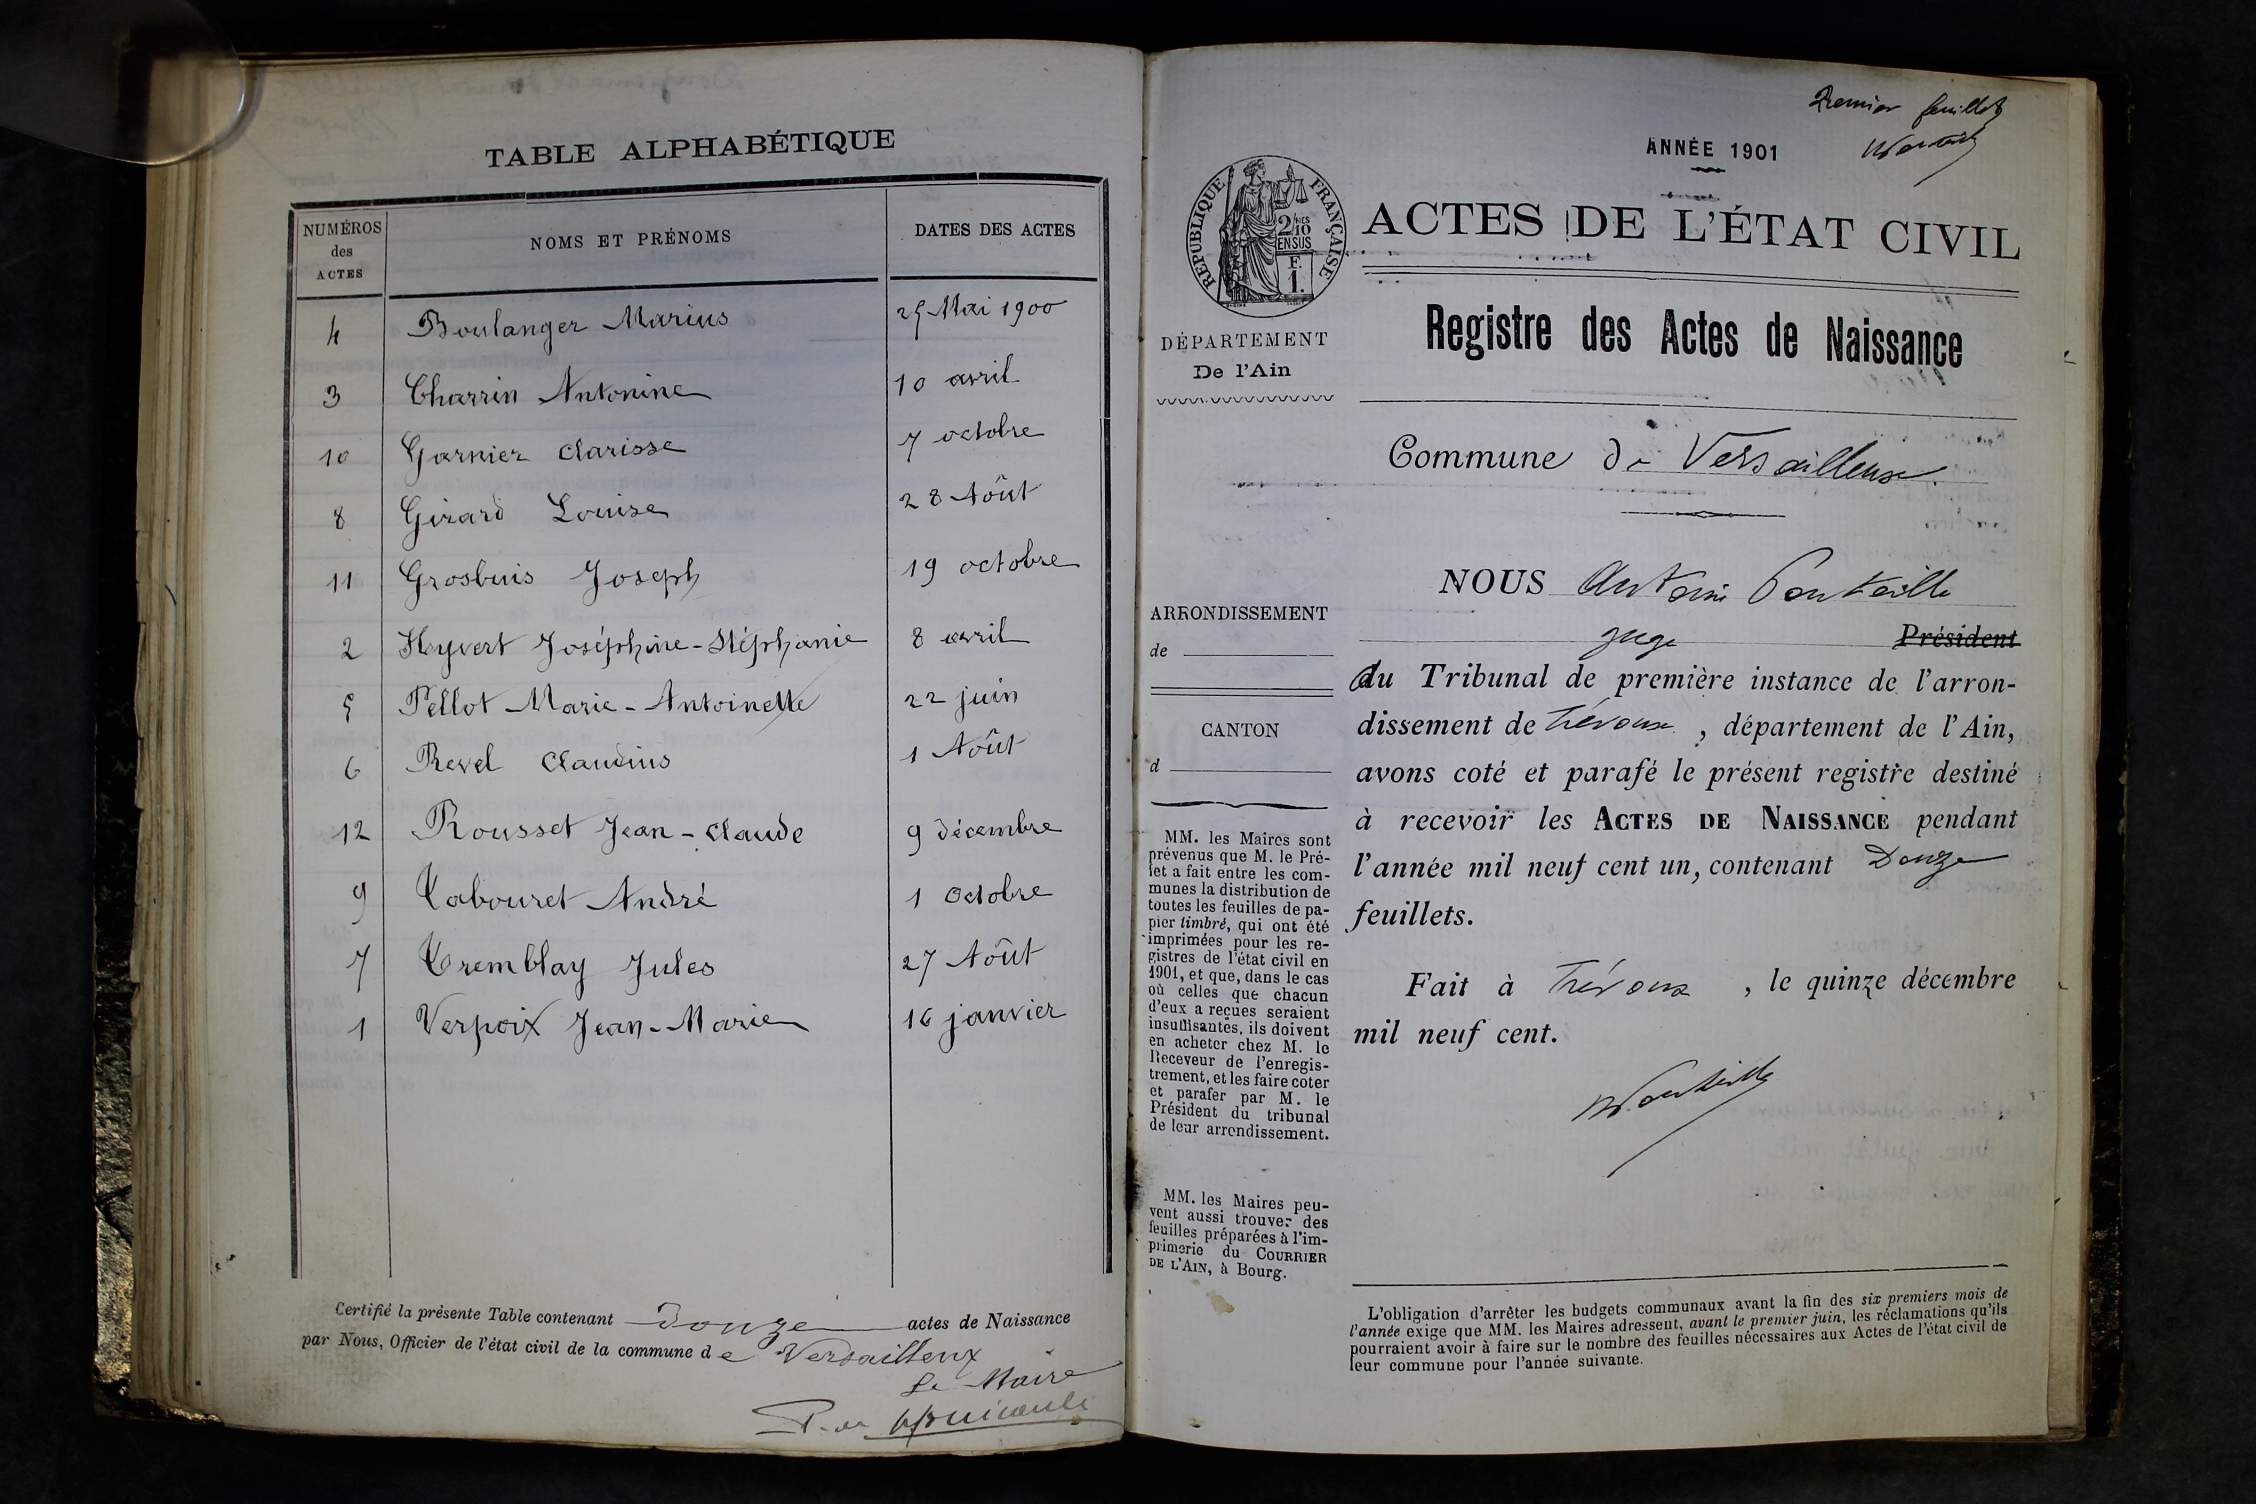 TABLE ALPHABÉTIQUE
NUMÉROS
des
ACTES
NOMS ET PRÉNOMS
DATES DES ACTES
4 Boulanger Marius 25 Mai 1900
3 Charrin Antonine 10 avril
10 Garnier Clarisse 7 octobre
8 Girard Louise 28 Août
11 Grosbuis Joseph 19 octobre
2 Hyvert Joséphine-Stéphanie 8 avril
5 Pellot Marie-Antoinette 22 juin
6 Revel Claudius 1 Août
12 Rousset Jean-Claude 9 décembre
9 Tabouret André 1 Octobre
7 Tremblay Jules 27 Août
1 Verpoix Jean-Marie 16 janvier
Certifié la présente Table contenant Douze actes de Naissance
par Nous, Officier de l'état civil de la commune de Versailleux
Le Maire
Premier feuillet
ANNÉE 1901
RÉPUBLIQUE FRANÇAISE
2/10
EN SUS
F.
1.
ACTES DE L'ÉTAT CIVIL
Registre des Actes de Naissance
DÉPARTEMENT
De l'Ain
Commune de Versailleux
ARRONDISSEMENT
de
CANTON
d
MM. les Maires sont
prévenus que M. le Pré-
fet a fait entre les com-
munes la distribution de
toutes les feuilles de pa-
pier timbré, qui ont été
imprimées pour les re-
gistres de l'état civil en
1901, et que, dans le cas
où celles que chacun
d'eux a reçues seraient
insuffisantes, ils doivent
en acheter chez M. le
Receveur de l'enregis-
trement, et les faire coter
et parafer par M. le
Président du tribunal
de leur arrondissement.
MM. les Maires peu-
vent aussi trouver des
feuilles préparées à l'im-
primerie du COURRIER
DE L'AIN, à Bourg.
NOUS Antoine Ponteille
juge Président
du Tribunal de première instance de l'arron-
dissement de Trévoux, département de l'Ain,
avons coté et parafé le présent registre destiné
à recevoir les ACTES DE NAISSANCE pendant
l'année mil neuf cent un, contenant Douze
feuillets.
Fait à Trévoux, le quinze décembre
mil neuf cent.
L'obligation d'arrêter les budgets communaux avant la fin des six premiers mois de
l'année exige que MM. les Maires adressent, avant le premier juin, les réclamations qu'ils
pourraient avoir à faire sur le nombre des feuilles nécessaires aux Actes de l'état civil de
leur commune pour l'année suivante.